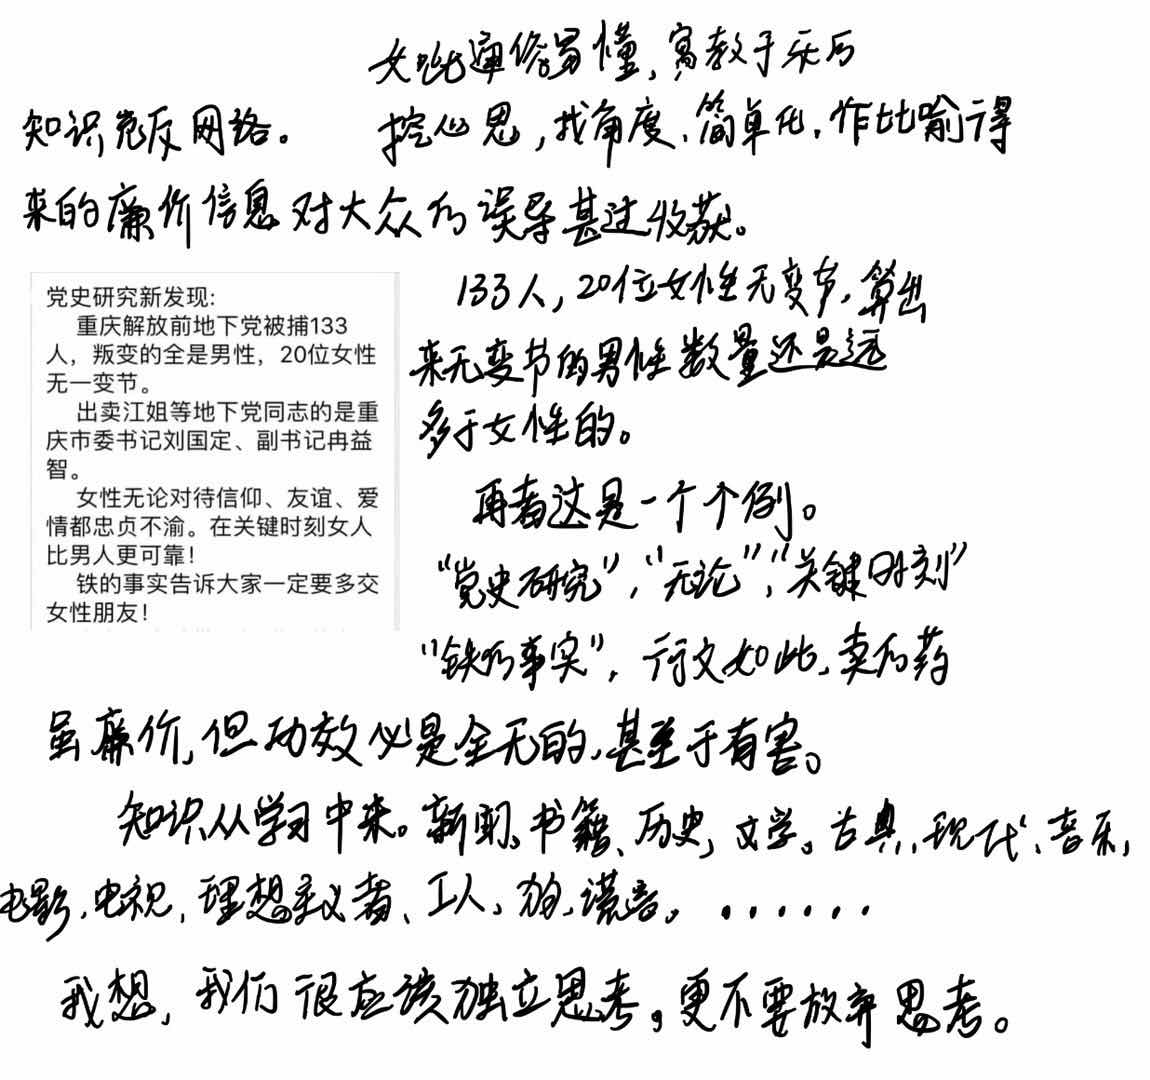 如此通俗易懂，寓教于乐的
知识充斥网络。挖心思，找角度、简单化，作比喻得
来的廉价信息对大众的误导甚过收获。
党史研究新发现:
重庆解放前地下党被捕133
人，叛变的全是男性，20位女性
无一变节。
出卖江姐等地下党同志的是重
庆市委书记刘国定、副书记冉益
智。
女性无论对待信仰、友谊、爱
情都忠贞不渝。在关键时刻女人
比男人更可靠！
铁的事实告诉大家一定要多交
女性朋友！
133人，20位女性无变节，算出
来无变节的男性数量还是远
多于女性的。
再者这是一个个例。
“党史研究”，“无论”，“关键时刻”
“铁的事实”，行文如此，卖的药
虽廉价，但功效必是全无的，甚至于有害。
知识从学习中来。新闻、书籍、历史，文学。古典，现代、音乐，
电影，电视，理想主义者、工人，狗，谎言，······
我想，我们很应该独立思考，更不要放弃思考。